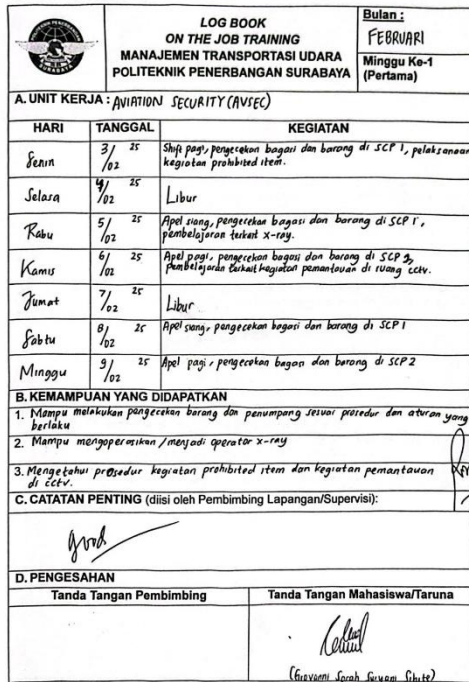 POLITEKNIK PENERBANGAN
SURABAYA
LOG BOOK
ON THE JOB TRAINING
MANAJEMEN TRANSPORTASI UDARA
POLITEKNIK PENERBANGAN SURABAYA
Bulan :
FEBRUARI
Minggu Ke-1
(Pertama)
A. UNIT KERJA : AVIATION SECURITY (AVSEC)
HARI TANGGAL KEGIATAN
Senin 3/02 25 Shift pagi, pengecekan bagasi dan barang di SCP 1, pelaksanaan
kegiatan prohibited item.
Selasa 4/02 25 Libur
Rabu 5/02 25 Apel siang, pengecekan bagasi dan barang di SCP 1,
pembelajaran terkait x-ray.
Kamis 6/02 25 Apel pagi, pengecekan bagasi dan barang di SCP 2,
pembelajaran terkait kegiatan pemantauan di ruang cctv.
Jumat 7/02 25 Libur
Sabtu 8/02 25 Apel siang, pengecekan bagasi dan barang di SCP 1
Minggu 9/02 25 Apel pagi, pengecekan bagasi dan barang di SCP 2
B. KEMAMPUAN YANG DIDAPATKAN
1. Mampu melakukan pengecekan barang dan penumpang sesuai prosedur dan aturan yang
berlaku
2. Mampu mengoperasikan / menjadi operator x-ray
3. Mengetahui prosedur kegiatan prohibited item dan kegiatan pemantauan
di cctv.
C. CATATAN PENTING (diisi oleh Pembimbing Lapangan/Supervisi):
good
D. PENGESAHAN
Tanda Tangan Pembimbing Tanda Tangan Mahasiswa/Taruna
(Giovanni Sarah Suryani